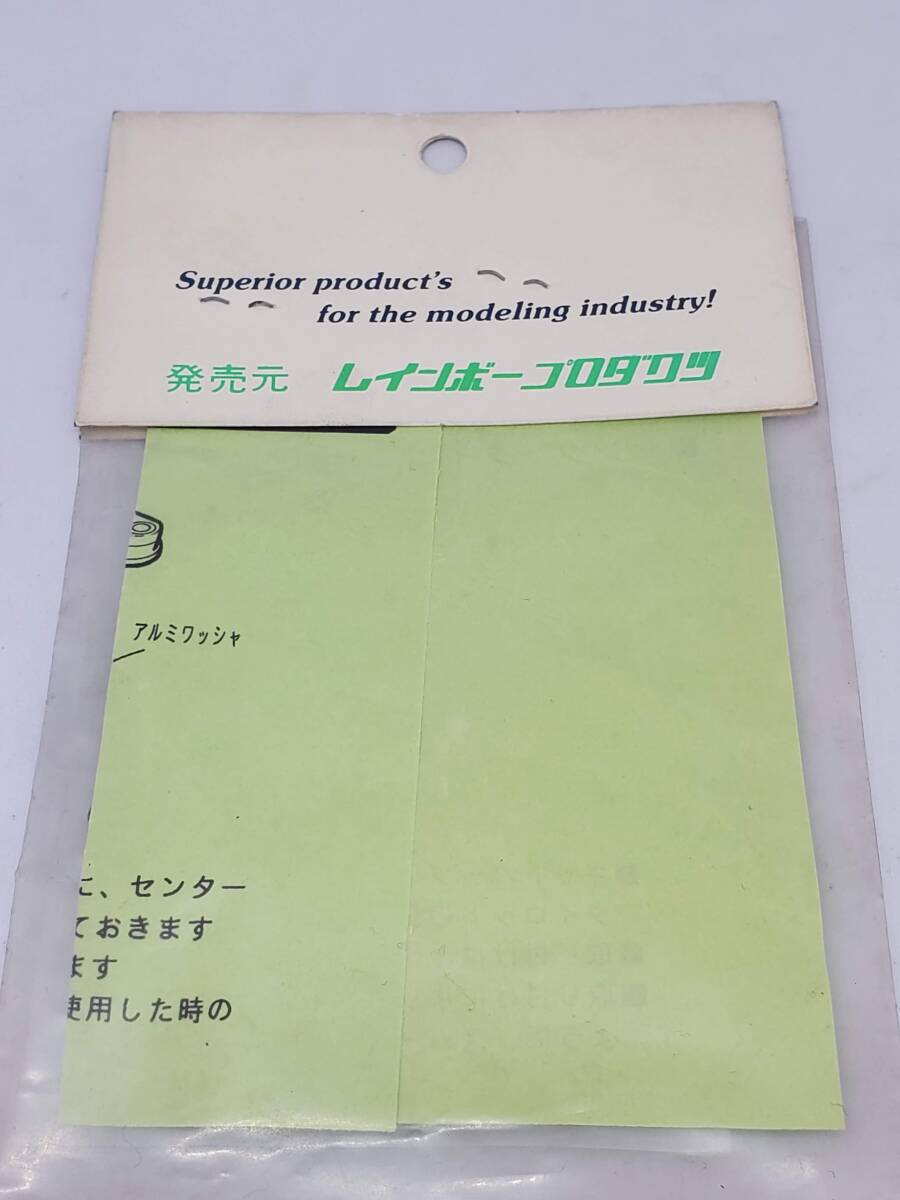 Superior product's
for the modeling industry!
発売元 レインボープロダクツ
アルミワッシャ
に、センター
ておきます
ます
使用した時の